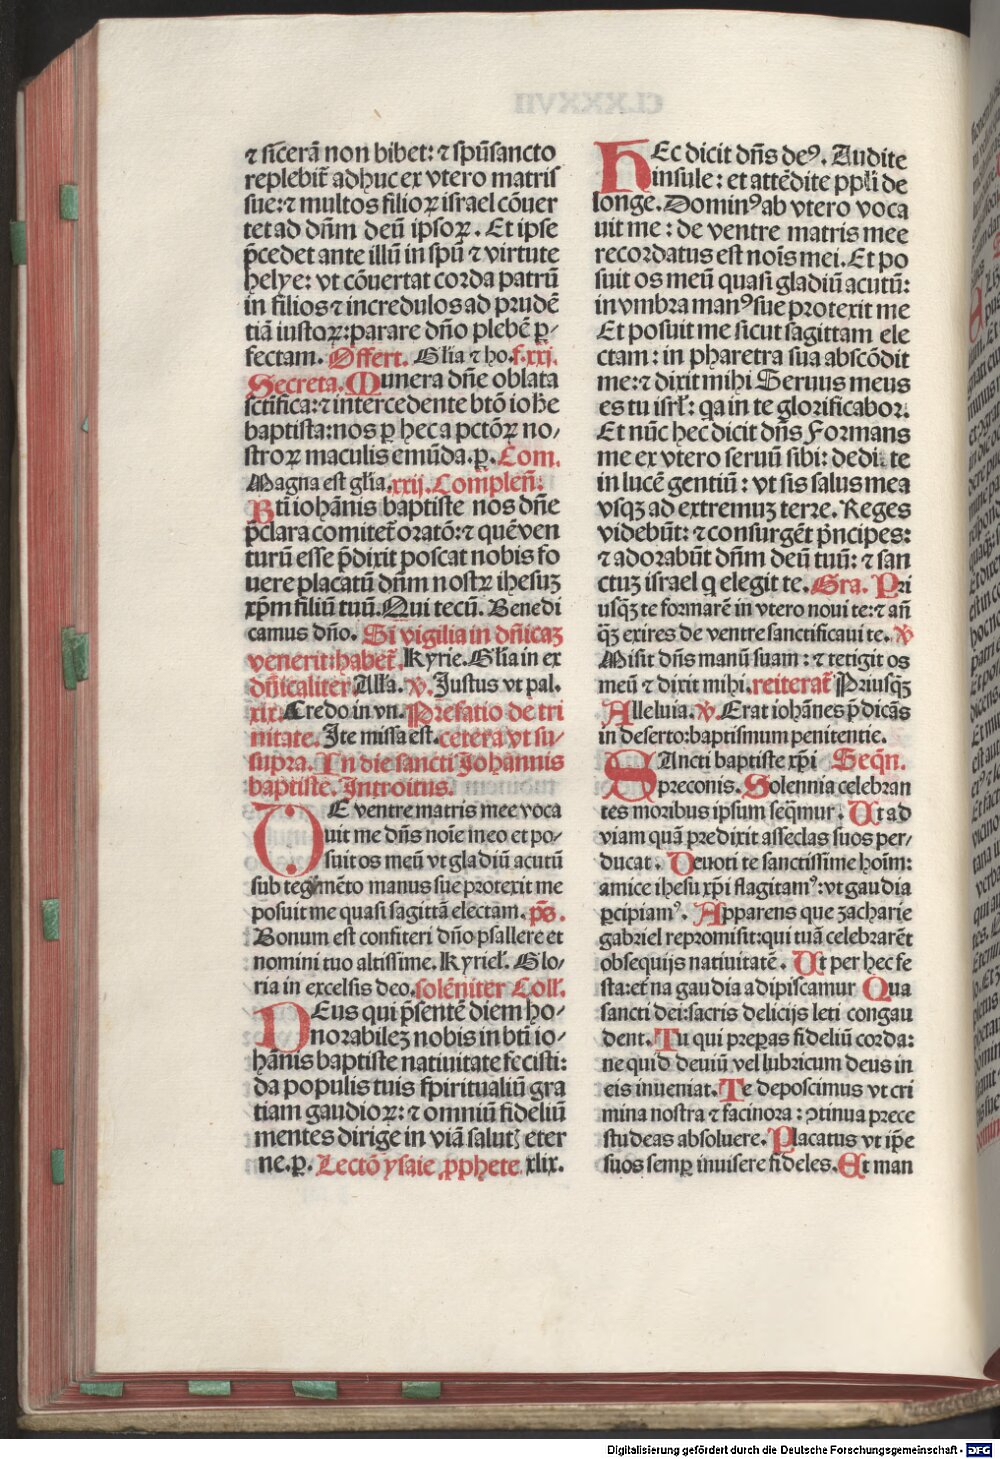 ⁊ sicerā non bibet: ⁊ spūsancto
replebit̄ adhuc ex vtero matris
sue: ⁊ multos filioꝝ israel cōuer
tet ad dn̄m deū ipsoꝝ. Et ipse
p̄cedet ante illū in spū ⁊ virtute
helye: vt cōuertat corda patrū
in filios ⁊ incredulos ad prudē
tiā iustoꝝ: parare dn̄o plebē ꝑ-
fectam. Offert. Gl̄ia ⁊ ho. f. xxj.
Secreta. Munera dn̄e oblata
sctīfica: ⁊ intercedente btō ioh̄e
baptista: nos ꝑ hec a pctōꝝ no/
stroꝝ maculis emūda. ꝑ. Com.
Magna est gl̄ia. xxij. Complen̄:
Bti iohānis baptiste nos dn̄e
p̄clara comitet̄ oratō: ⁊ quē ven
turū esse p̄dixit poscat nobis fo
uere placatū dn̄m nostꝝ ihesuꝫ
xp̄m filiū tuū. Qui tecū. Benedi
camus dn̄o. Si vigilia in dn̄icaꝫ
venerit: habet̄. Kyrie. Gl̄ia in ex
dn̄icaliter Allā. v̄. Justus vt pal.
xix. Credo in vn. Prefatio de tri
nitate. Ite missa est. cetera vt su/
supra. In die sancti Johannis
baptiste. Introitus.
DE ventre matris mee voca
uit me dn̄s noīe meo et po/
suit os meū vt gladiū acutū
sub tegmēto manus sue protexit me
posuit me quasi sagittā electam. ps̄.
Bonum est confiteri dn̄o psallere et
nomini tuo altissime. Kyriel̄. Glo/
ria in excelsis deo. solēniter Coll̄.
DEus qui p̄sentē diem ho/
norabileꝫ nobis in bti io/
hānis baptiste natiuitate fecisti:
da populis tuis spiritualiū gra
tiam gaudioꝝ: ⁊ omniū fideliū
mentes dirige in viā salutꝭ eter
ne. ꝑ. Lectō ysaie ꝓphete xlix.
HEc dicit dn̄s deꝰ. Audite
insule: et attēdite ppl̄i de
longe. Dominꝰ ab vtero voca
uit me: de ventre matris mee
recordatus est noīs mei. Et po
suit os meū quasi gladiū acutū:
in vmbra manꝰ sue protexit me
Et posuit me sicut sagittam ele
ctam: in pharetra sua abscōdit
me: ⁊ dixit mihi Seruus meus
es tu isrl̄: qa in te glorificabor.
Et nūc hec dicit dn̄s Formans
me ex vtero seruū sibi: dedi te
in lucē gentiū: vt sis salus mea
vsqꝫ ad extremuꝫ terre. Reges
videbūt: ⁊ consurgēt p̄ncipes:
⁊ adorabūt dn̄m deū tuū: ⁊ san
ctuꝫ israel q elegit te. Gra. Pri
usqꝫ te formarē in vtero noui te: ⁊ an̄
qꝫ exires de ventre sanctificaui te. v̄
Misit dn̄s manū suam: ⁊ tetigit os
meū ⁊ dixit mihi. reiterat̄ Priusqꝫ
Alleluia. v̄. Erat iohānes p̄dicās
in deserto: baptismum penitentie.
SAncti baptiste xp̄i Seqn̄.
preconis. Solennia celebran
tes moribus ipsum seq̄mur. Ut ad
viam quā predixit asseclas suos per/
ducat. Deuoti te sanctissime hoīm:
amice ihesu xp̄i flagitamꝰ: vt gaudia
ꝑcipiamꝰ. Apparens que zacharie
gabriel repromisit: qui tuā celebrarēt
obsequijs natiuitatē. Ut per hec fe
sta: et̄na gaudia adipiscamur Qua
sancti dei: sacris delicijs leti congau
dent. Tu qui preꝑas fideliū corda:
ne quid deuiū vel lubricum deus in
eis inueniat. Te deposcimus vt cri
mina nostra ⁊ facinora: ꝯtinua prece
studeas absoluere. Placatus vt ip̄e
suos semꝑ inuisere fideles. Et man
Digitalisierung gefördert durch die Deutsche Forschungsgemeinschaft - DFG